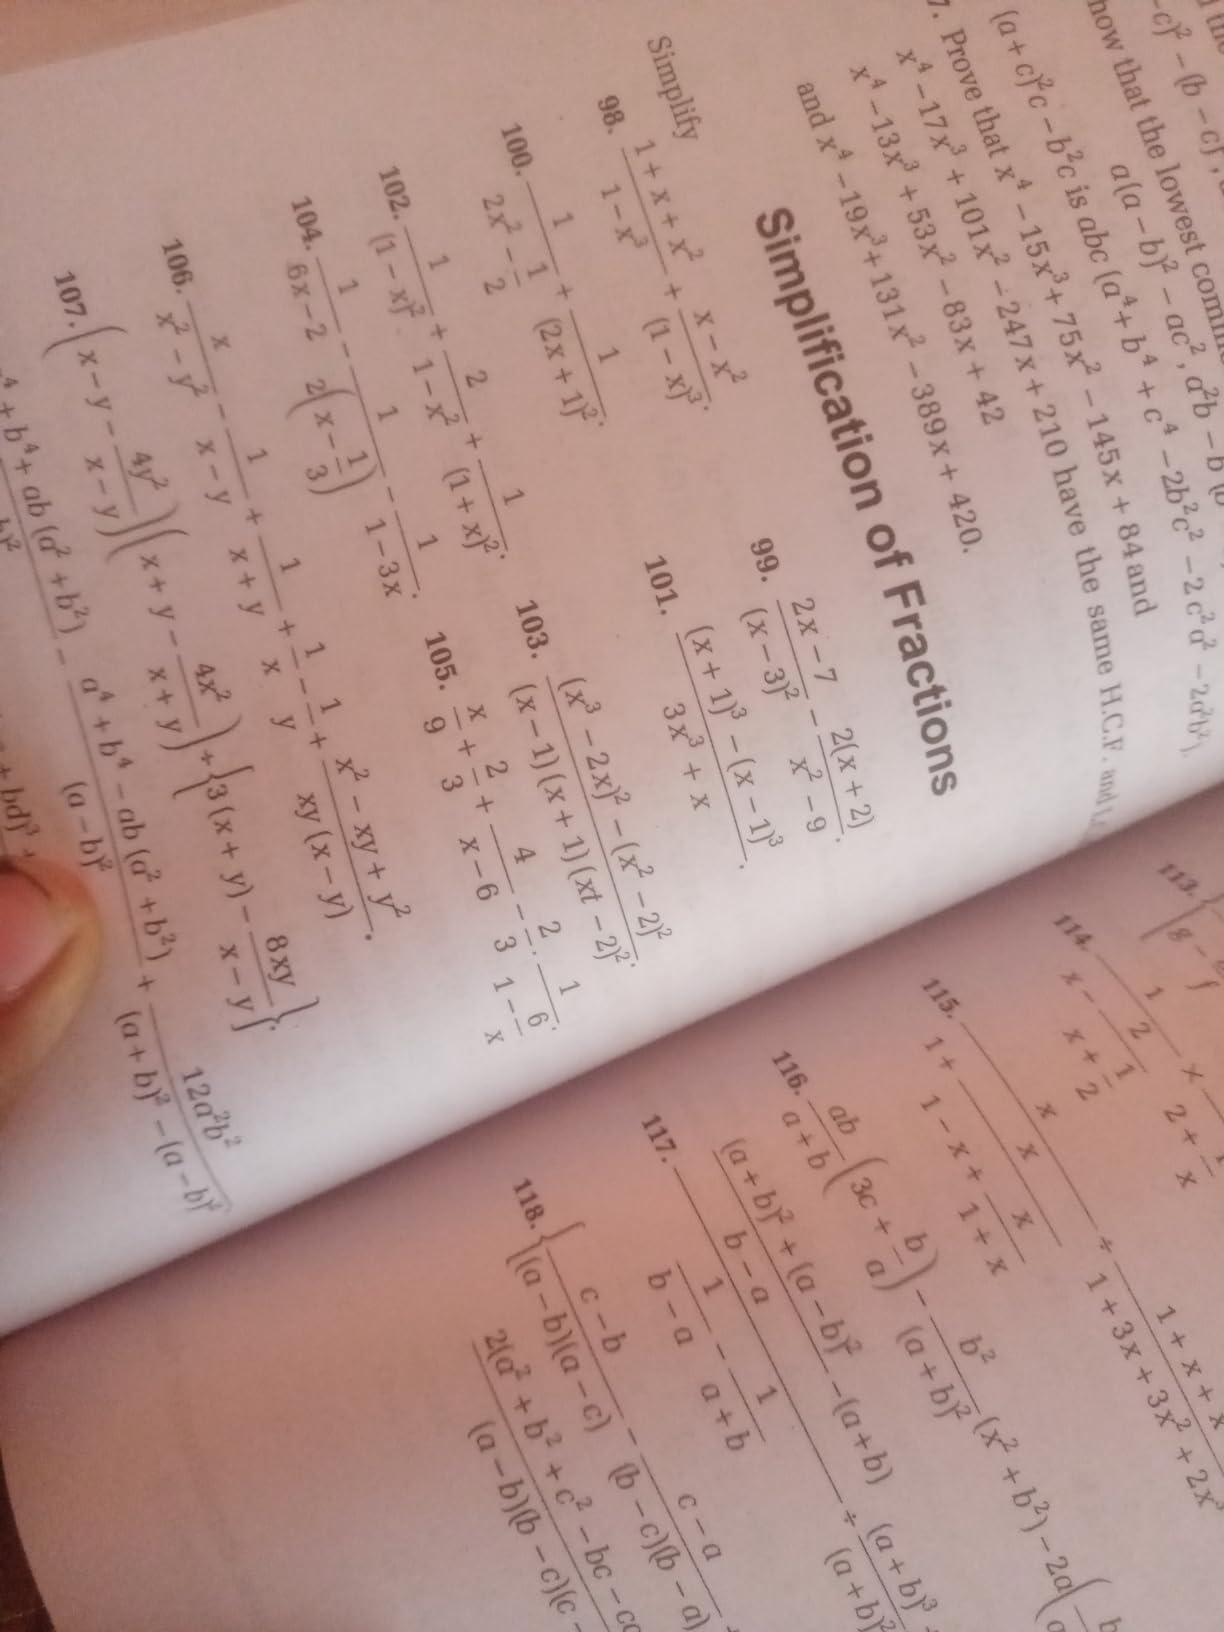 -c)² - (b - c)
how that the lowest comm
a(a - b)² - ac², a²b - b(b
(a + c)²c - b²c is abc (a⁴ + b⁴ + c⁴ - 2b²c² - 2c²a² - 2a²b²).
7. Prove that x⁴ - 15x³ + 75x² - 145x + 84 and
x⁴ - 17x³ + 101x² - 247x + 210 have the same H.C.F. and
x⁴ - 13x³ + 53x² - 83x + 42
and x⁴ - 19x³ + 131x² - 389x + 420.
Simplification of Fractions
Simplify
98. (1 + x + x²)/(1 - x³) + (x - x²)/(1 - x)³.
99. (2x - 7)/(x - 3)² - 2(x + 2)/(x² - 9).
100. 1/(2x² - 1/2) + 1/(2x + 1)².
101. ((x + 1)³ - (x - 1)³)/(3x³ + x).
102. 1/(1 - x)² + 2/(1 - x²) + 1/(1 + x)².
103. ((x³ - 2x)² - (x² - 2)²)/((x - 1)(x + 1)(xt - 2)²).
104. 1/(6x - 2) - 1/(2(x - 1/3)) - 1/(1 - 3x).
105. x/9 + 2/3 + 4/(x - 6) - 2/3 · 1/(1 - 6/x).
106. x/(x² - y²) - 1/(x - y) + 1/(x + y) + 1/x - 1/y + (x² - xy + y²)/(xy(x - y)).
107. (x - y - 4y²/(x - y))(x + y - 4x²/(x + y)) ÷ {3(x + y) - 8xy/(x - y)}.
⁴ + b⁴ + ab(a² + b²) - (a⁴ + b⁴ - ab(a² + b²))/(a - b)² + 12a²b²/((a + b)² - (a - b)²
b)²
+ bd)³ +
113.
114. 1/(x - 2/(x + 1/2)) ×
2 +
x
115. x/(1 + x/(1 - x + x/(1 + x))) ÷ (1 + x + x
1 + 3x + 3x² + 2x³
116. ab/(a + b) (3c + b/a) - b²/(a + b)² (x² + b²) - 2a(
117. ((a + b)² + (a - b)²)/(b - a) - (a + b)
1/(b - a) - 1/(a + b)
÷ (a + b)³
(a + b)²
118. {(c - b)/((a - b)(a - c)) - (c - a)/((b - c)(b - a))
2(a² + b² + c² - bc - ca
(a - b)(b - c)(c -